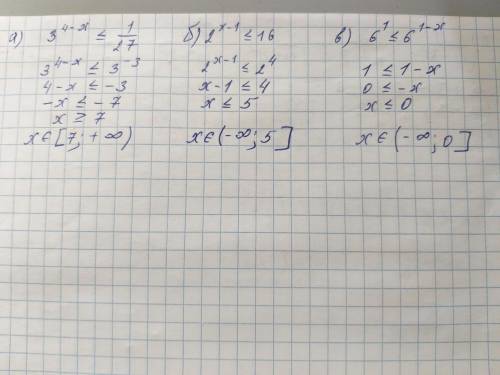 а) 3^{4-x} ≤ 1/27
3^{4-x} ≤ 3^{-3}
4-x ≤ -3
-x ≤ -7
x ≥ 7
x∈[7; +∞)
б) 2^{x-1} ≤ 16
2^{x-1} ≤ 2^4
x-1 ≤ 4
x ≤ 5
x∈(-∞; 5]
в) 6^1 ≤ 6^{1-x}
1 ≤ 1-x
0 ≤ -x
x ≤ 0
x∈(-∞; 0]